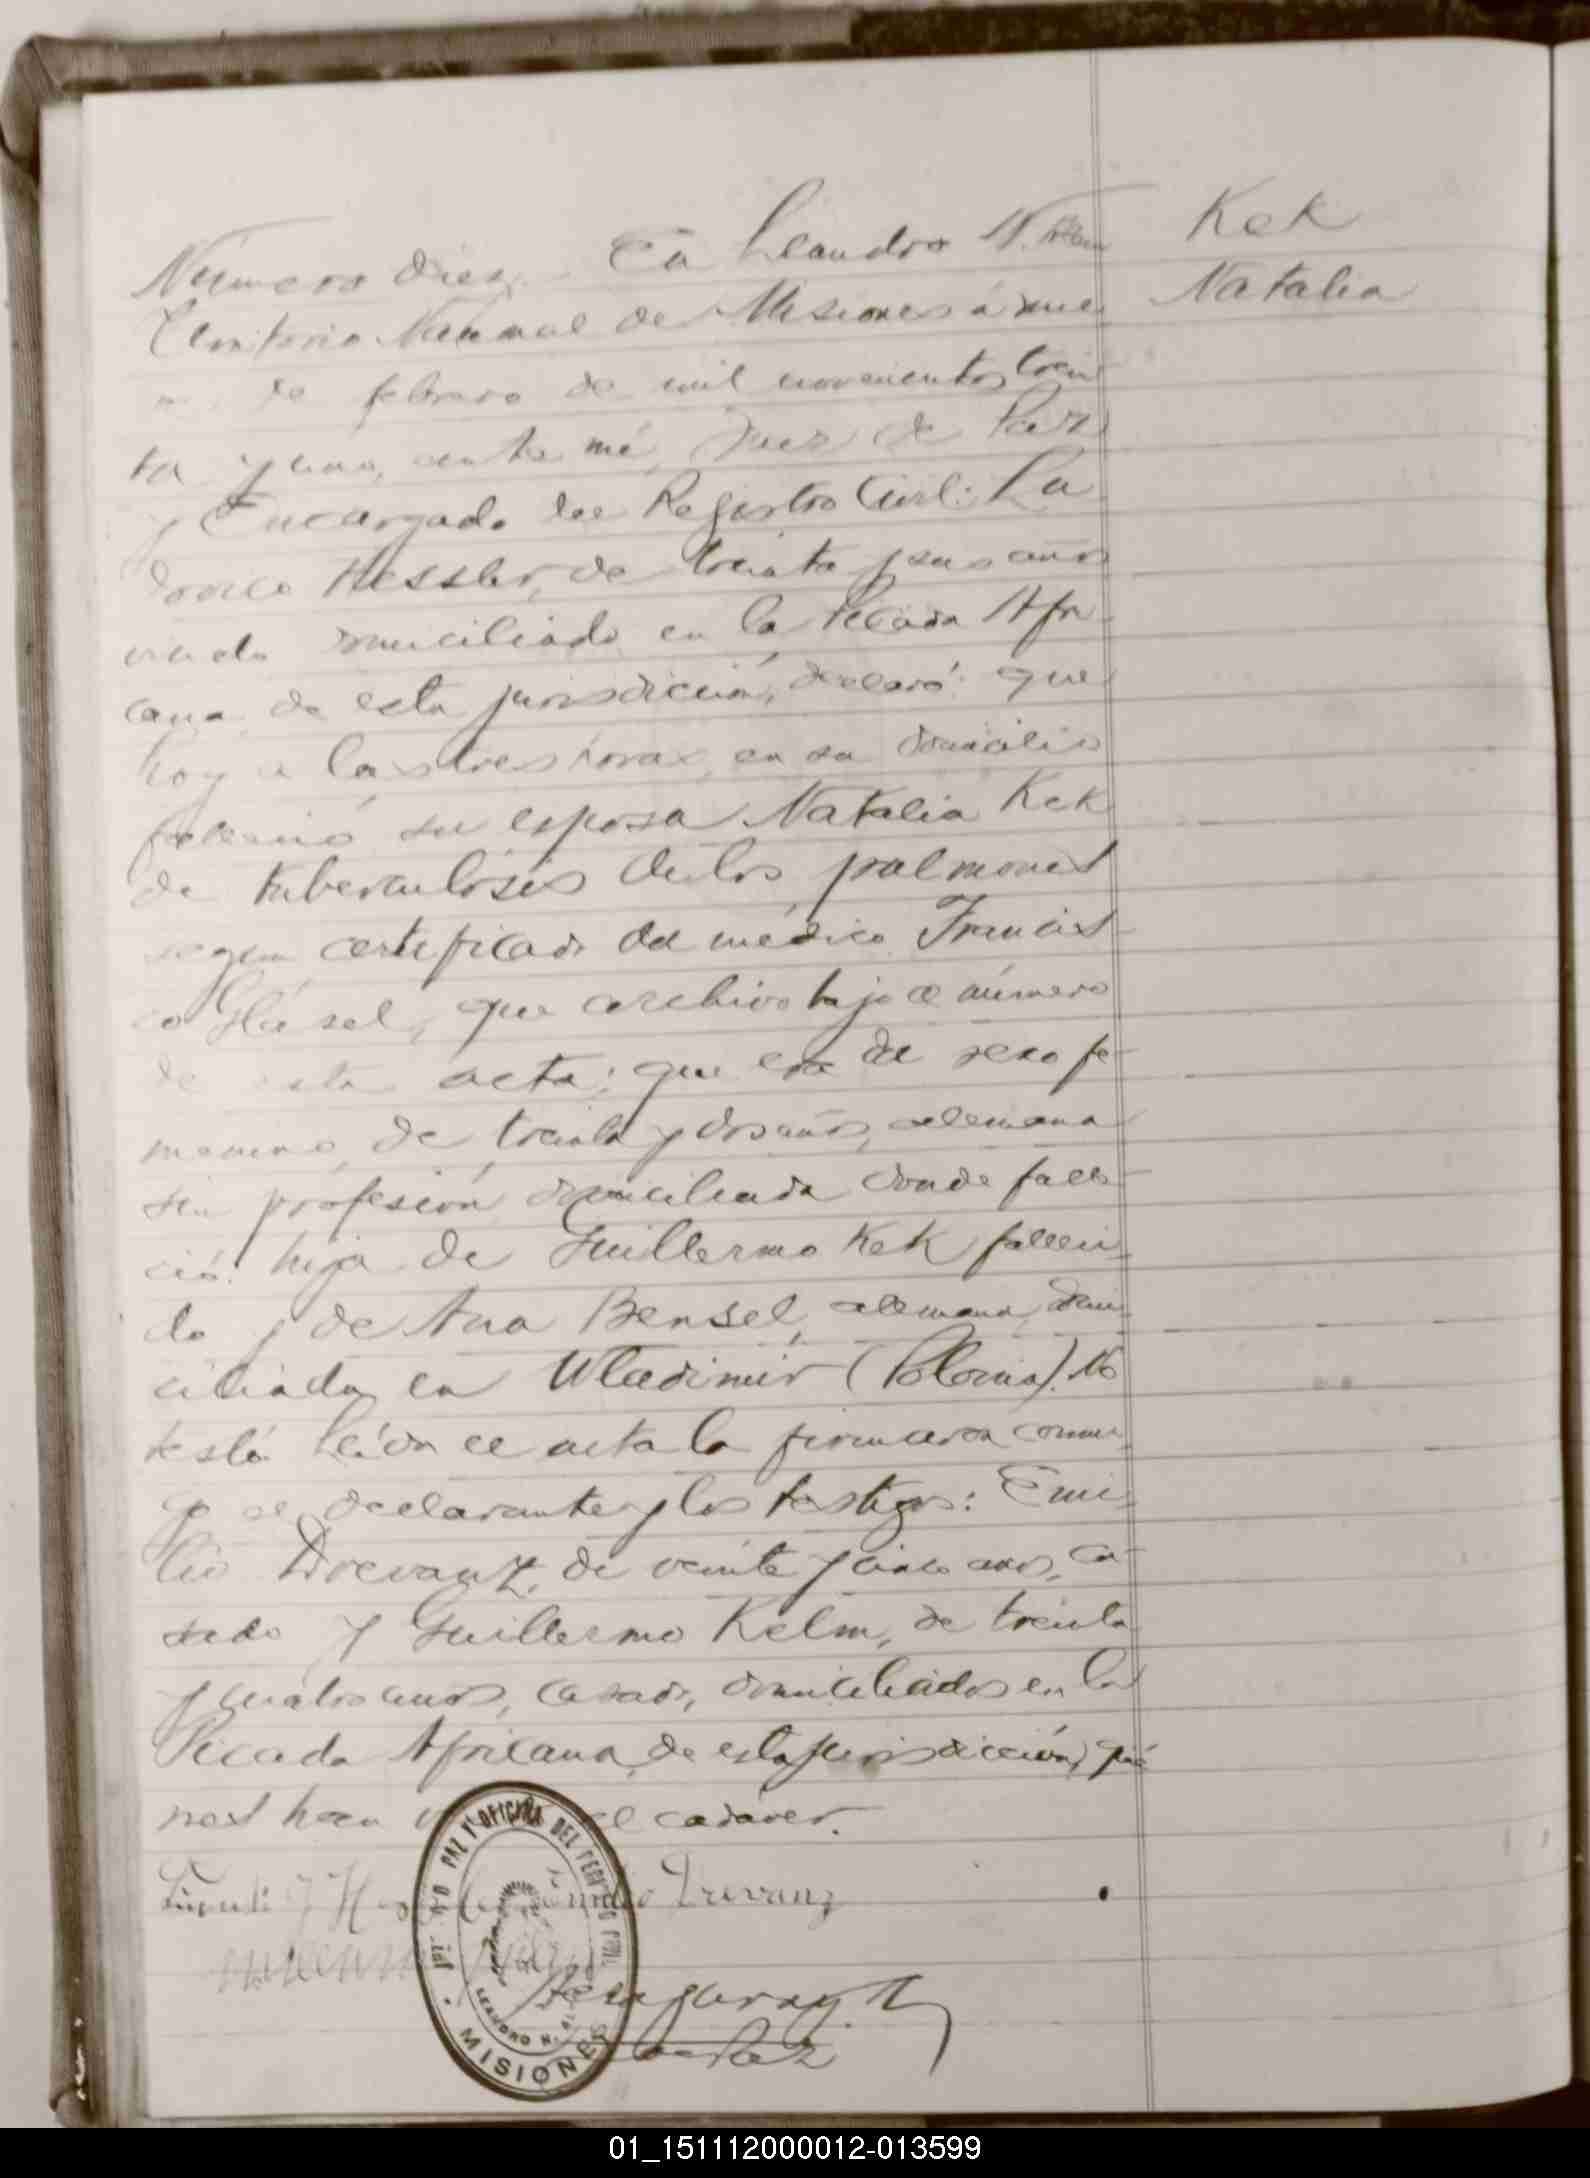 Kek
Natalia
Número diez. En Leandro N. Alem
Territorio Nacional de Misiones á nue
de febrero de mil novecientos trein
ta y uno, ante mí, Juez de Paz
y Encargado del Registro Civil: Lu
dovico Hessler, de treinta y seis años
viudo domiciliado en la Picada Afri
cana de esta jurisdicción, declaró: que
hoy a las tres horas, en su domicilio
falleció su esposa Natalia Kek
de tuberculósis de los pulmones
segun certificado del médico Francis
co Gläsel, que archivo bajo el número
de esta acta; que era del sexo fe-
menino, de treinta y dos años, alemana
sin profesión domiciliada donde falle-
ció: hija de Guillermo Kek falleci-
do y de Ana Bensel, alemana, domi-
ciliada en Wladimir (Polonia). No
testó. Leída el acta la firmaron conmi-
go el declarante y los testigos: Emi-
lio Drevanz, de veinte y cinco años, ca-
sado y Guillermo Kelm, de treinta
y cuatro años, casado, domiciliados en la
Picada Africana de esta jurisdicción, quie
nes han el cadáver.
Emilio Drevanz
JUZ. DE PAZ Y OFICINA DEL REGISTRO CIVIL
LEANDRO N. ALEM
MISIONES
Juez de Paz
01_151112000012-013599